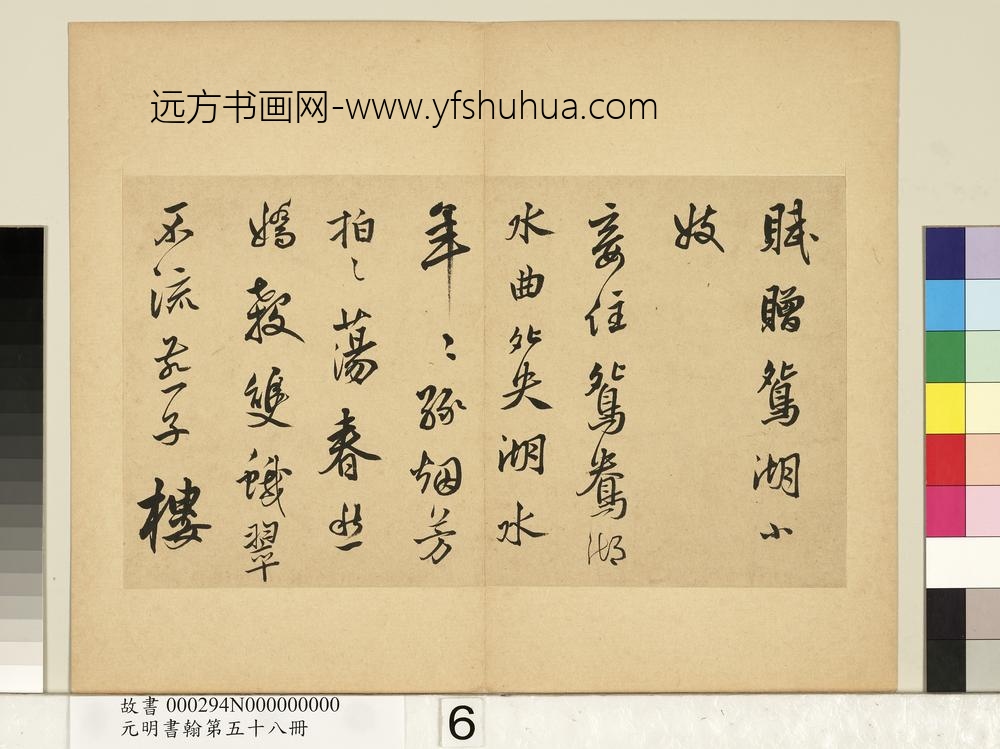 远方书画网-www.yfshuhua.com
賦贈鴛湖小
妓
妾住鴛鴦湖
水曲夗央湖水
年〻綠烟芳
拍〻蕩春愁
嬌教雙蛾翠
不流燕子樓
故書 000294N000000000
元明書翰第五十八冊
6